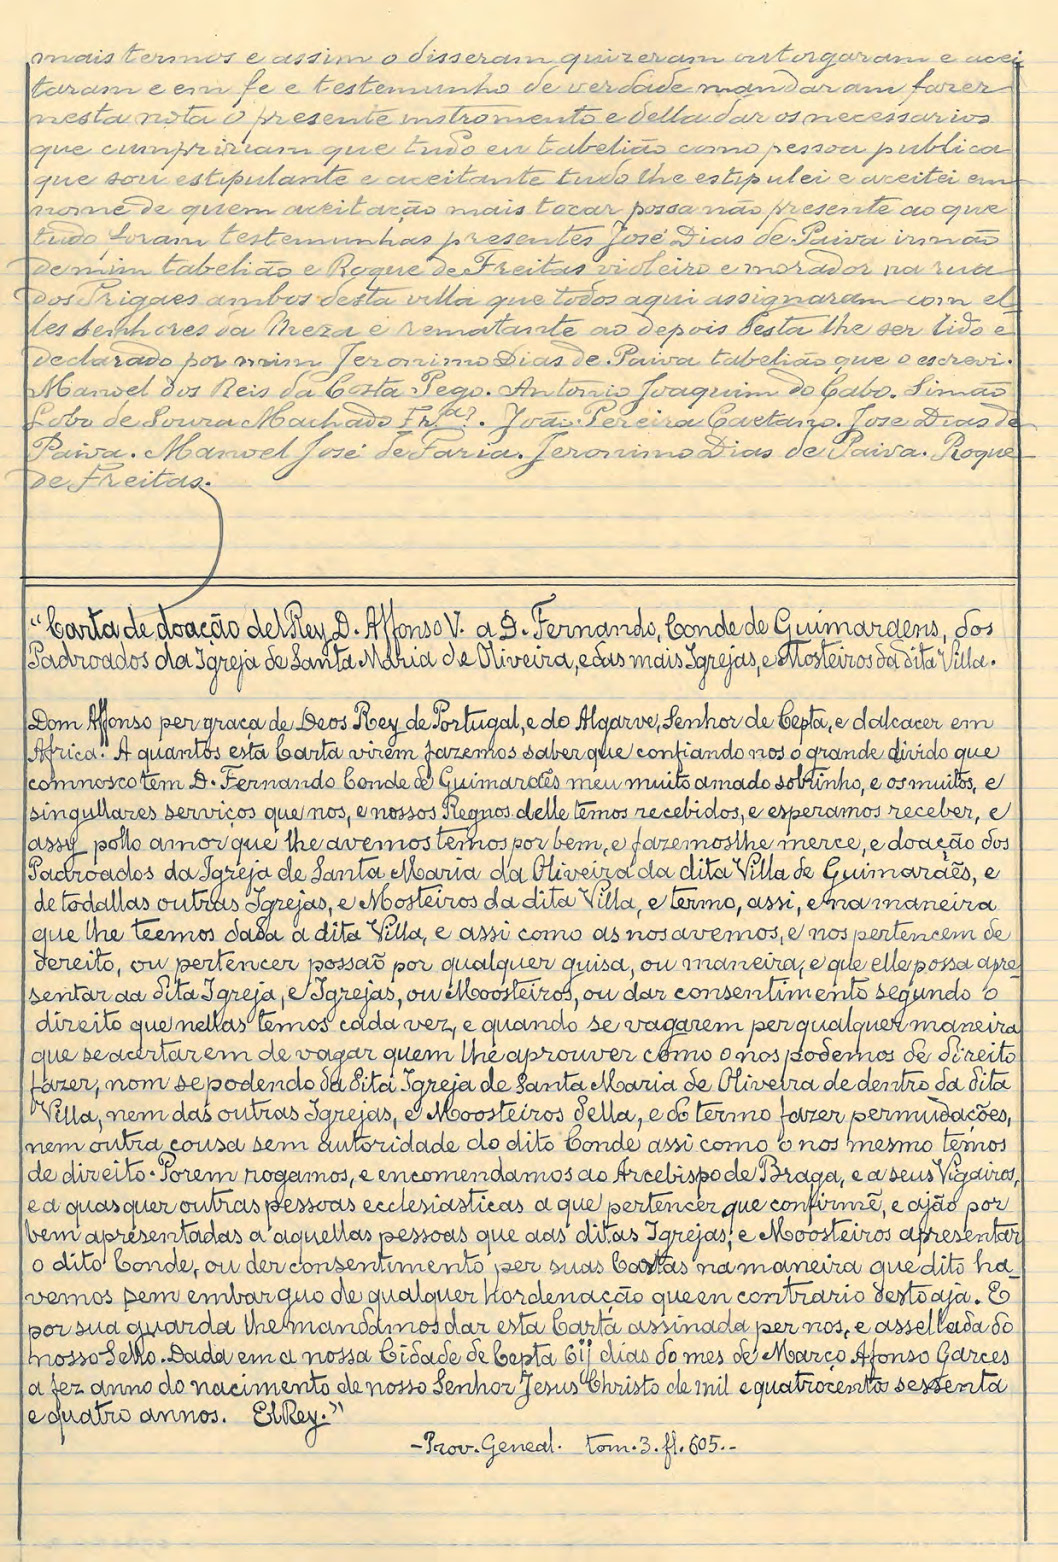 mais termos e assim o disseram quizeram outorgaram e acei
taram e em fe e testemunho de verdade mandaram fazer
nesta nota o presente instromento e della dar os necessarios
que cumpririam que tudo eu tabelião como pessoa publica
que sou estipulante e aceitante tudo lhe estipulei e aceitei em
nome de quem aceitação mais tocar possa não presente ao que
tudo foram testemunhas presentes José Dias de Paiva irmão
de mim tabelião e Roque de Freitas violeiro e morador na rua
dos Prigaes ambos desta villa que todos aqui assignaram com el-
les senhores da Meza e rematante ao depois desta lhe ser lido e
declarado por mim Jeronimo Dias de Paiva tabelião que o escrevi.
Manoel dos Reis da Costa Pego. Antonio Joaquim do Cabo. Simão
Lobo de Souza Machado Frª?. João Pereira Caetano. Jose Dias de
Paiva. Manoel José de Faria. Jeronimo Dias de Paiva. Roque
de Freitas.
"Carta de doação del Rey D. Affonso V. a D. Fernando, Conde de Guimaraens, dos
Padroados da Igreja de Santa Maria de Oliveira, e das mais Igrejas, e Mosteiros da dita Villa.
Dom Affonso per graça de Deos Rey de Portugal, e do Algarve, Senhor de Cepta, e dalcacer em
Africa. A quantos esta Carta virem fazemos saber que confiando nos o grande divido que
comnosco tem D. Fernando Conde de Guimarães meu muito amado sobrinho, e os muitos, e
singullares serviços que nos, e nossos Regnos delle temos recebidos, e esperamos receber, e
assy pollo amor que lhe avemos temos por bem, e fazemoslhe merce, e doação dos
Padroados da Igreja de Santa Maria da Oliveira da dita Villa de Guimarães, e
de todallas outras Igrejas, e Mosteiros da dita Villa, e termo, assi, e na maneira
que lhe teemos dada a dita Villa, e assi como as nos avemos, e nos pertencem de
dereito, ou pertencer possão por qualquer guisa, ou maneira, e que elle possa apre-
sentar aa dita Igreja, e Igrejas, ou Moosteiros, ou dar consentimento segundo o
direito que nellas temos cada vez, e quando se vagarem per qualquer maneira
que se acertarem de vagar quem lhe aprouver como o nos podemos de direito
fazer, nom se podendo da dita Igreja de Santa Maria de Oliveira de dentro da dita
Villa, nem das outras Igrejas, e Moosteiros della, e do termo fazer permudações,
nem outra cousa sem autoridade do dito Conde assi como o nos mesmo temos
de direito. Porem rogamos, e encomendamos ao Arcebispo de Braga, e a seus Vigairos,
e a quasquer outras pessoas ecclesiasticas a que pertencer que confirmẽ, e ajão por
bem apresentadas a aquellas pessoas que aas ditas Igrejas, e Moosteiros apresentar
o dito Conde, ou der consentimento per suas Cartas na maneira que dito ha-
vemos sem embarguo de qualquer hordenação que en contrario desto aja. E
por sua guarda lhe mandamos dar esta Carta assinada per nos, e assellada do
nosso Sello. Dada em a nossa Cidade de Cepta bij dias do mes de Março Afonso Garces
a fez anno do nacimento de nosso Senhor Jesus Christo de mil e quatrocentos sessenta
e quatro annos. ElRey."
-Prov. Geneal. tom. 3. fl. 605.-